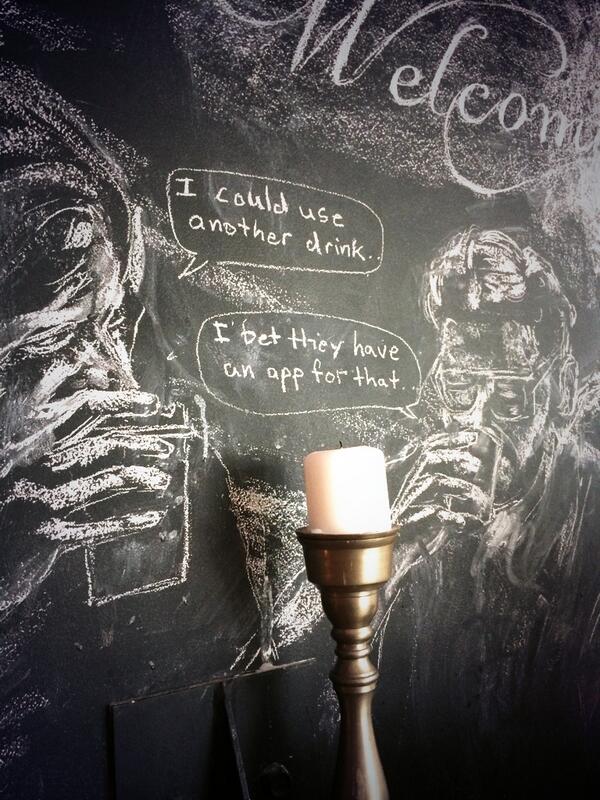 Welcom
I could use
another drink.
I bet they have
an app for that..